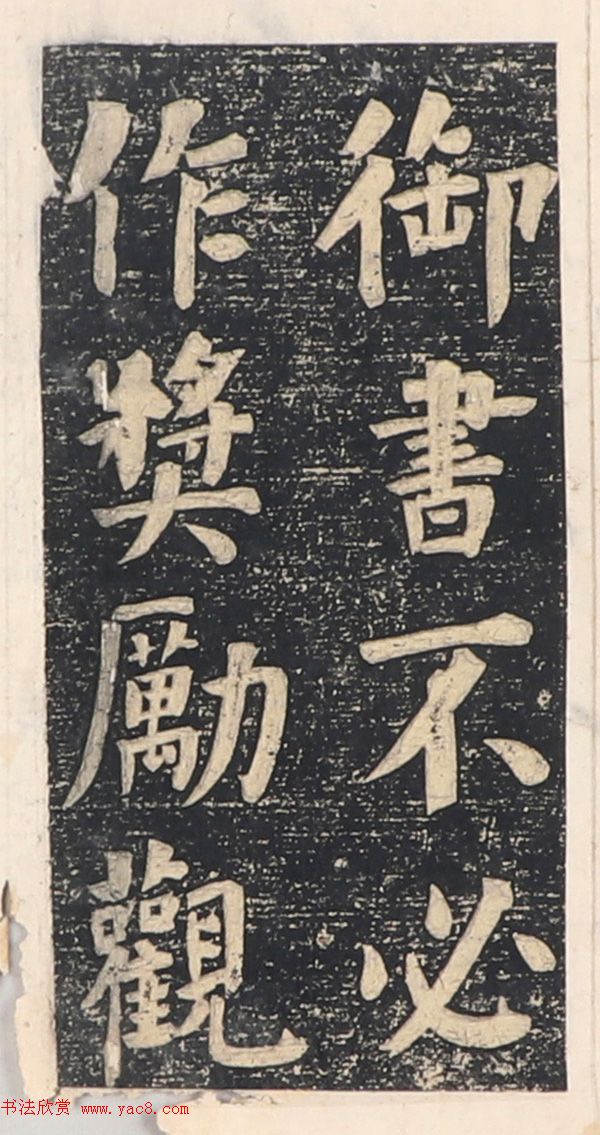 御書不必
作獎勵觀
书法欣赏 www.yac8.com